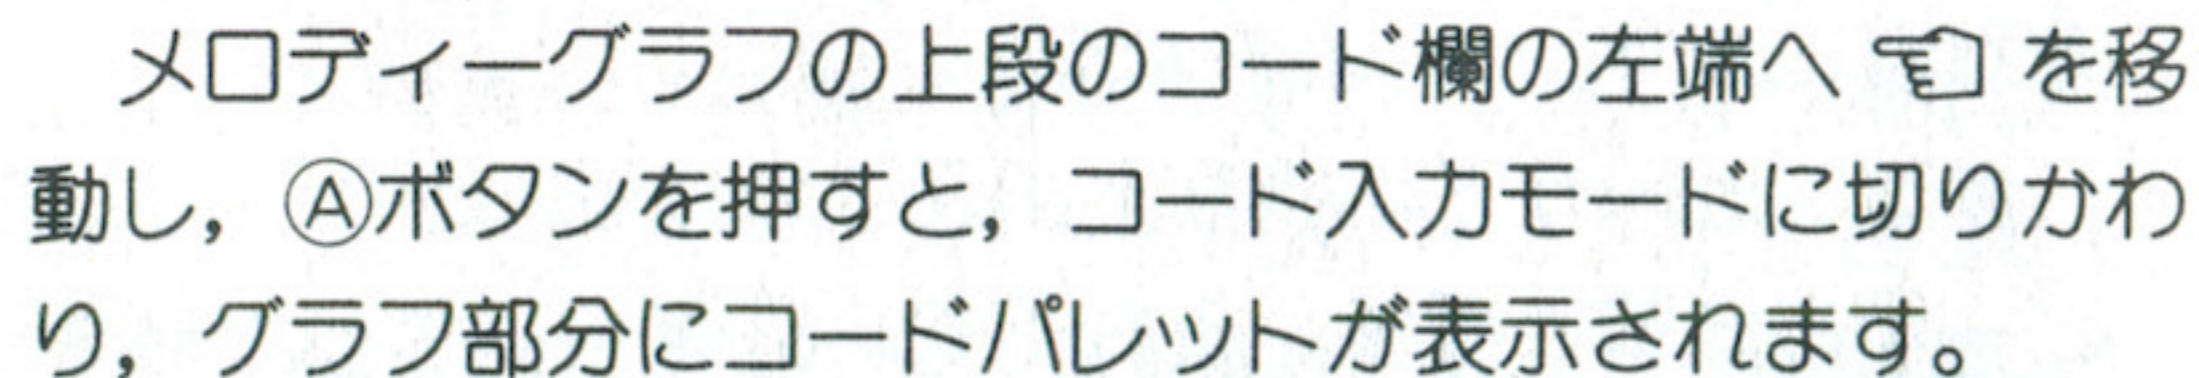 メロディーグラフの上段のコード欄の左端へ ☜ を移
動し，Ⓐボタンを押すと，コード入力モードに切りかわ
り，グラフ部分にコードパレットが表示されます。